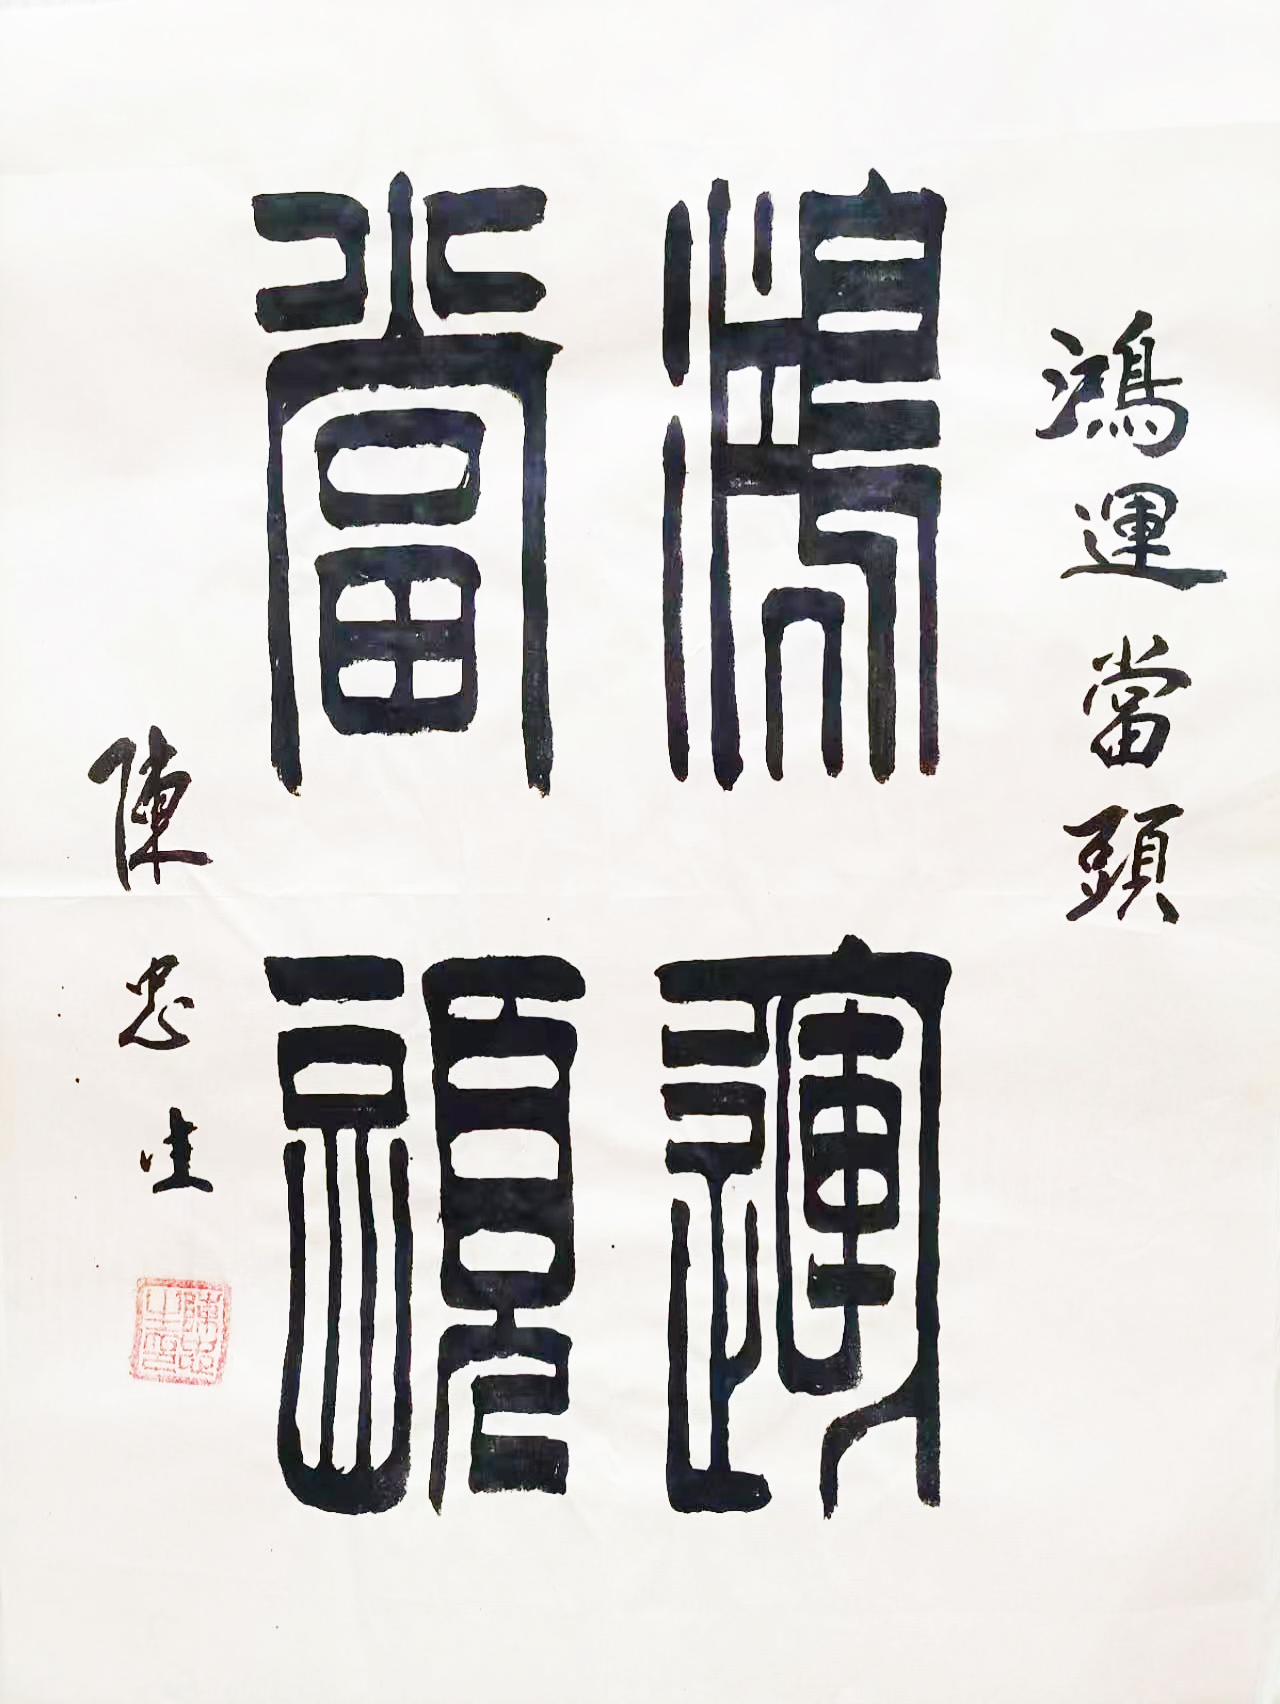 鴻運當頭
鴻運
當頭
陳忠生